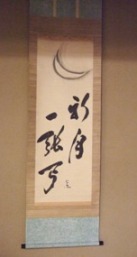 新月
一張弓